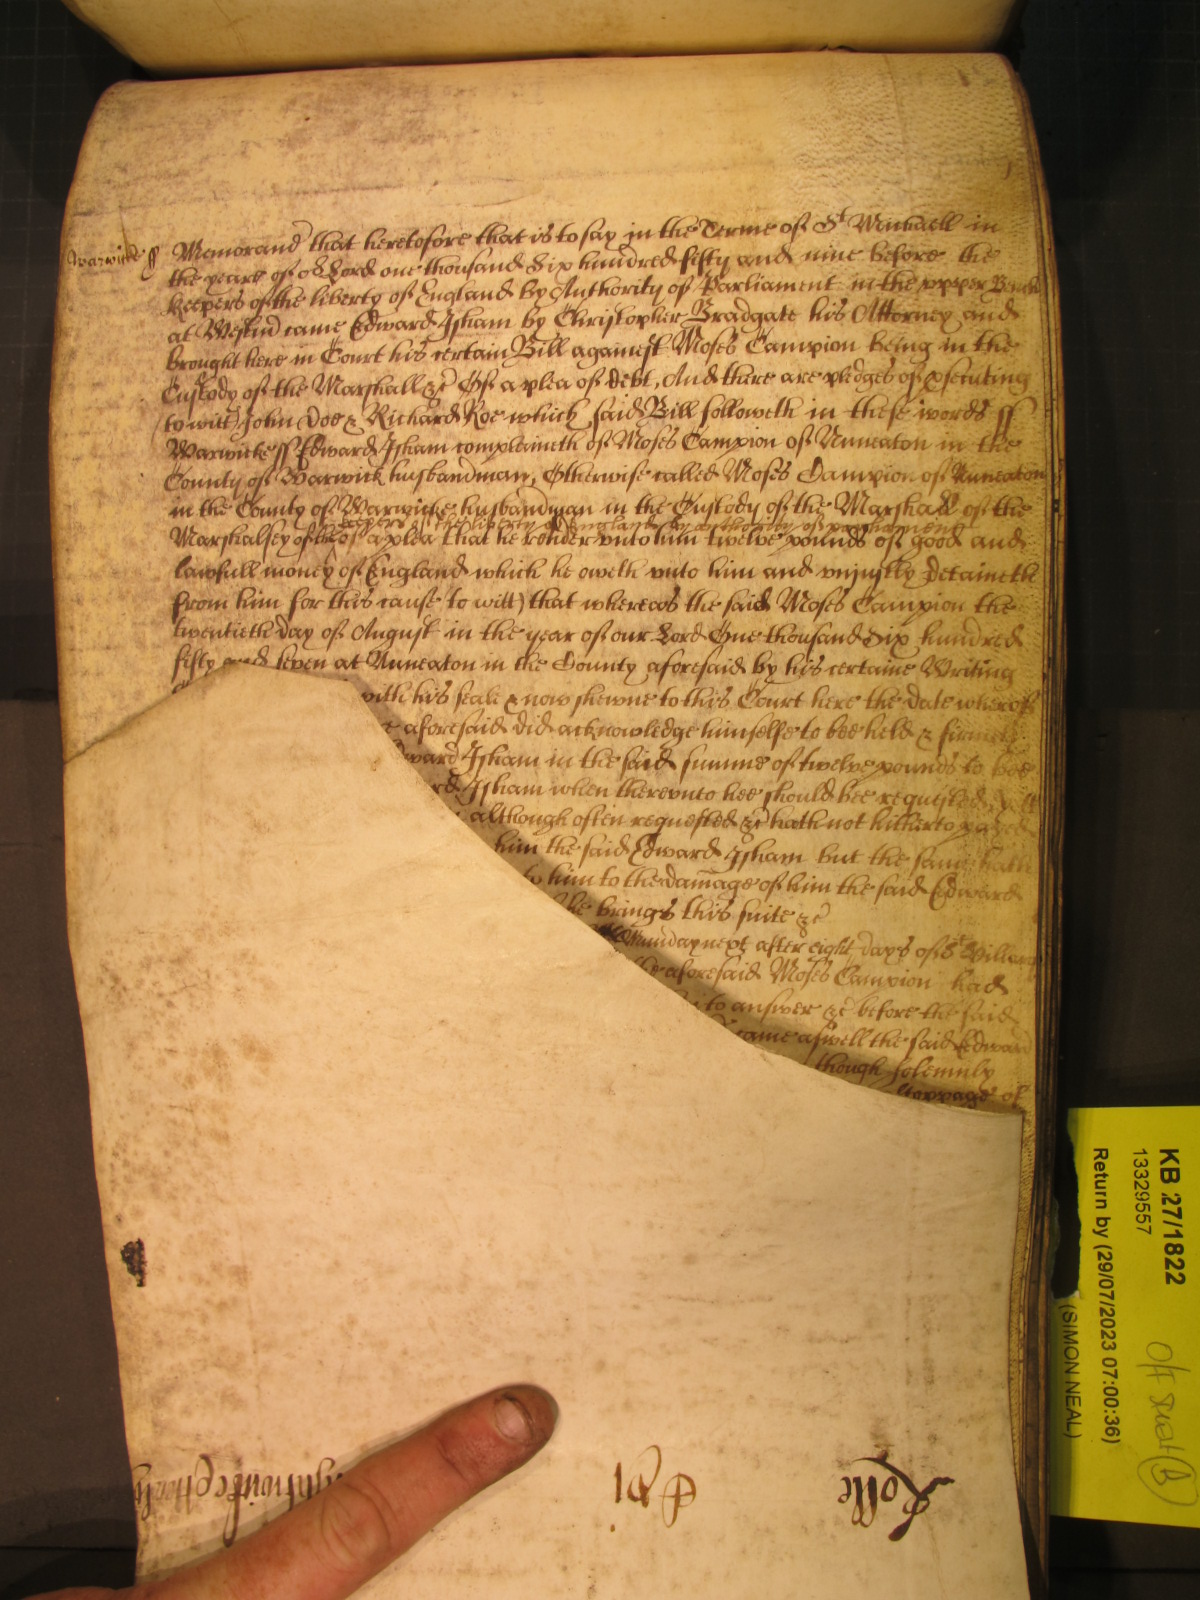 Warwicke ss Memorand that heretofore that is to say in the Terme of St Michaell in
the yeare of or Lord one thousand Six hundred fifty and nine before the
Keepers of the liberty of England by Authority of Parliament in the upper Bench
at Westmr came Edward Isham by Christopher Bradgate his Attorney and
brought here in Court his certain Bill against Moses Campion being in the
Custody of the Marshall &c Of a plea of debt, And there are pledges of
to witt John Doe & Richard Roe which said Bill followeth in these words ss
Warwicke ss Edward Isham complaineth of Moses Campion of Nuneaton in the
County of Warwick husbandman, Otherwise called Moses Campion of Nuneaton
in the County of Warwicke husbandman in the Custody of the Marshall of the
keepers of the liberty of England by authority of parliament
Marshalsey of the of a plea that he render unto him twelve pounds of good and
lawfull money of England which he oweth unto him and unjustly detaineth
from him for this cause to witt) that whereas the said Moses Campion the
twentieth day of August in the year of our Lord One thousand Six hundred
fifty and seven at Nuneaton in the County aforesaid by his certaine Writing
with his seale & now shewne to this Court here the date wherof
aforesaid did acknowledge himselfe to bee held & firmely
Isham in the said summe of twelve pounds to bee
Isham when thereunto hee should bee requested,
although often requested &c hath not hitherto payed
him the said Edward Isham but the same hath
to him to the damage of him the said Edward
he brings this suite &c
Munday next after eight days of St William
the aforesaid Moses Campion had
to answer &c before the said
came aswell the said Edward
though solemnly
of
KB 27/1822
13329557
Return by (29/07/2023 07:00:36)
(SIMON NEAL)
Rolle